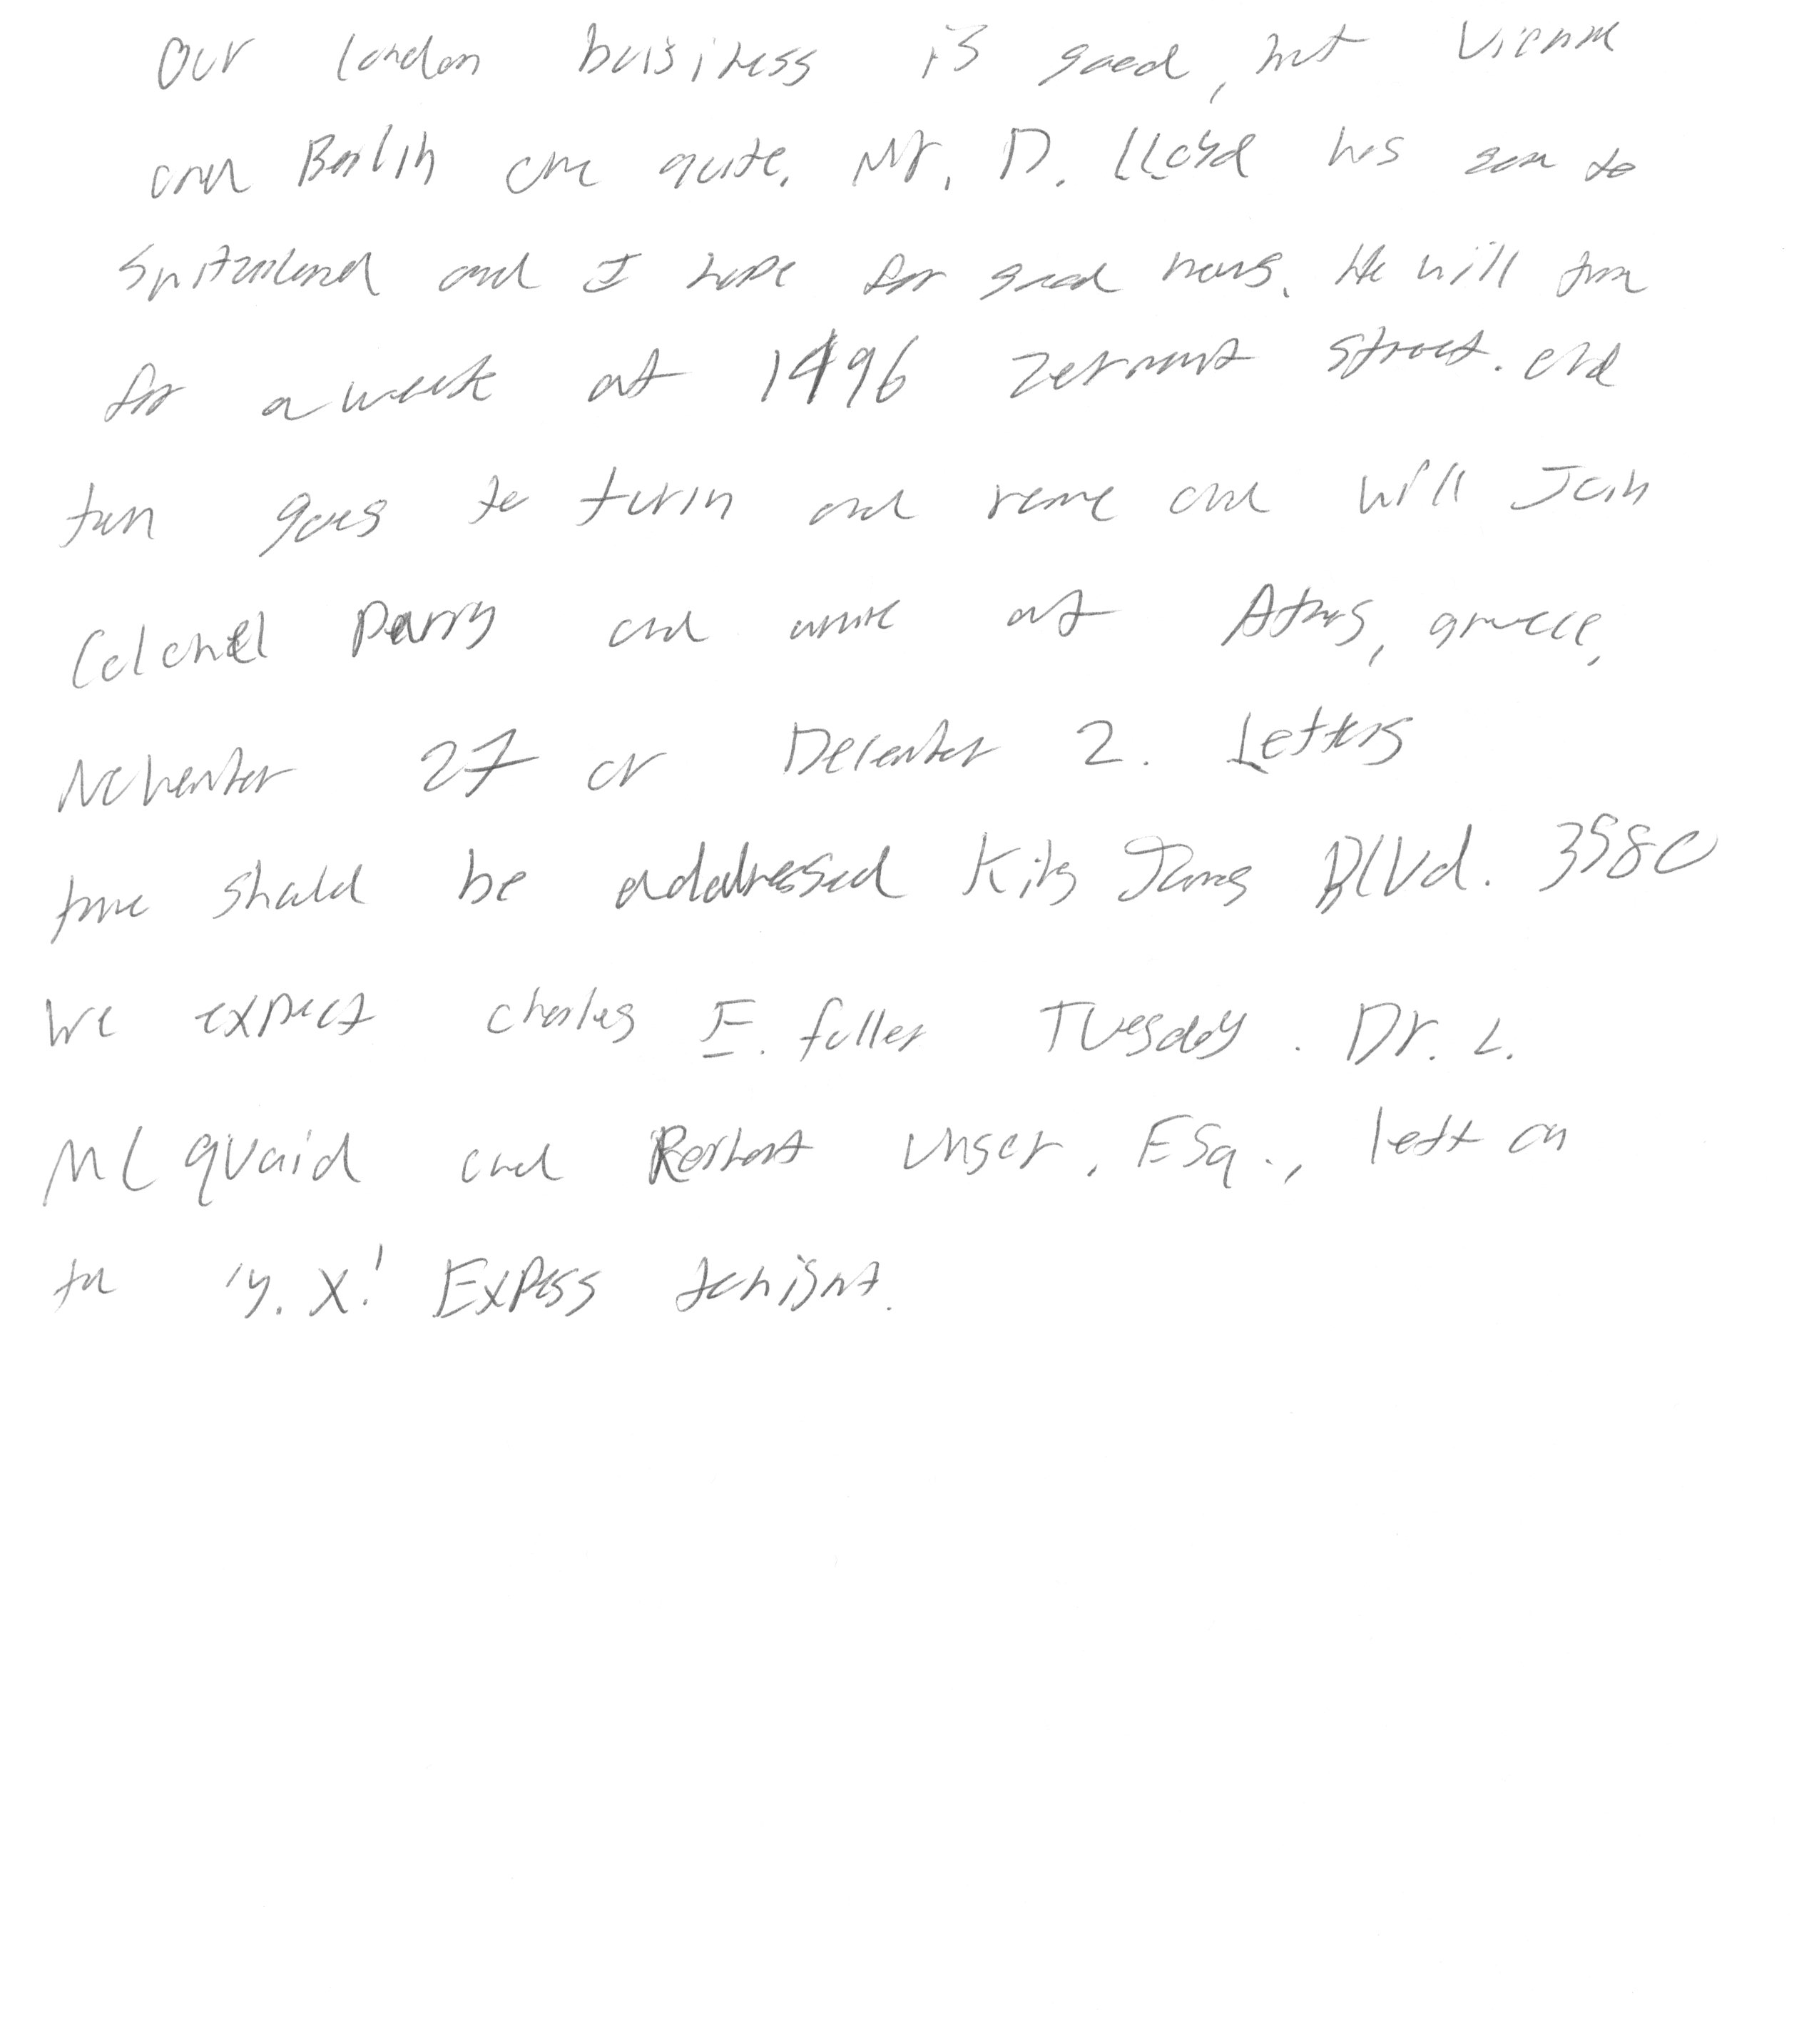 Our london buisiness is good, but Vienna
and Berlin are quite. Mr. D. Lloyd has gone to
Switzerland and I hope for good news. He will be
for a week at 1496 Zermott street. and
then goes to turin and rome and will Join
Colonel Parry and arrive at Athens, greece,
November 27 or December 2. Letters
there should be addressed King James Blvd. 3580
We expect charles E. fuller Tuesday. Dr. L.
Mc quaid and Robert Unger, Esq., left on
the 'y. X.' Express tonight.